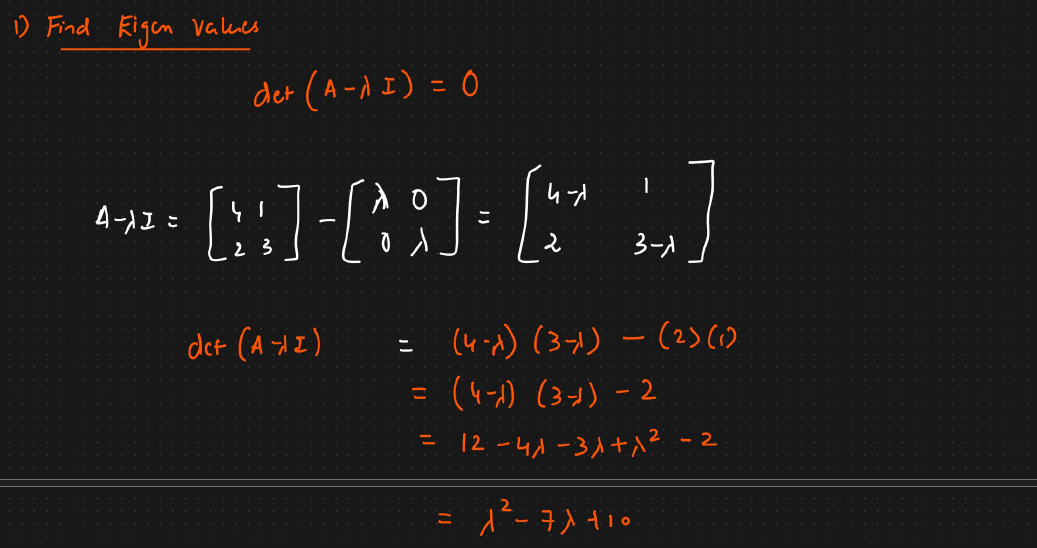 1) Find Eigen Values
det (A-λI) = 0
A-λI = [4 1; 2 3] - [λ 0; 0 λ] = [4-λ 1; 2 3-λ]
det (A-λI) = (4-λ) (3-λ) - (2)(1)
= (4-λ) (3-λ) - 2
= 12 - 4λ - 3λ + λ² - 2
= λ² - 7λ + 10